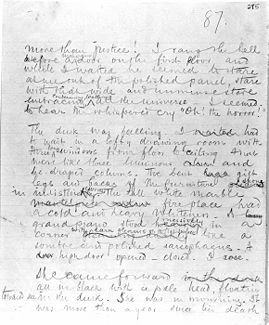 87.
more than justice! I rang the bell
before a door on the first floor, and
while I waited he seemed to stare
at me out of the polished panel, stare
with that wide and immense stare
embracing all the universe. I seemed
to hear the whispered cry "Oh! the horror!"
The dusk was falling. I had
to wait in a lofty drawing room with
three windows from floor to ceiling that
were like three luminous and
be-draped columns. The bent
legs and backs of the furniture
in indistinct The white marble
fire-place had
a cold and heavy whiteness. A
grand piano stood massively in a
corner with dark gleams like a
sombre and polished sarcophagus. A
high door opened - closed. I rose.
She came forward
all in black with a pale head, floating
towards me in the dusk. She was in mourning. It
was more than a year since his death